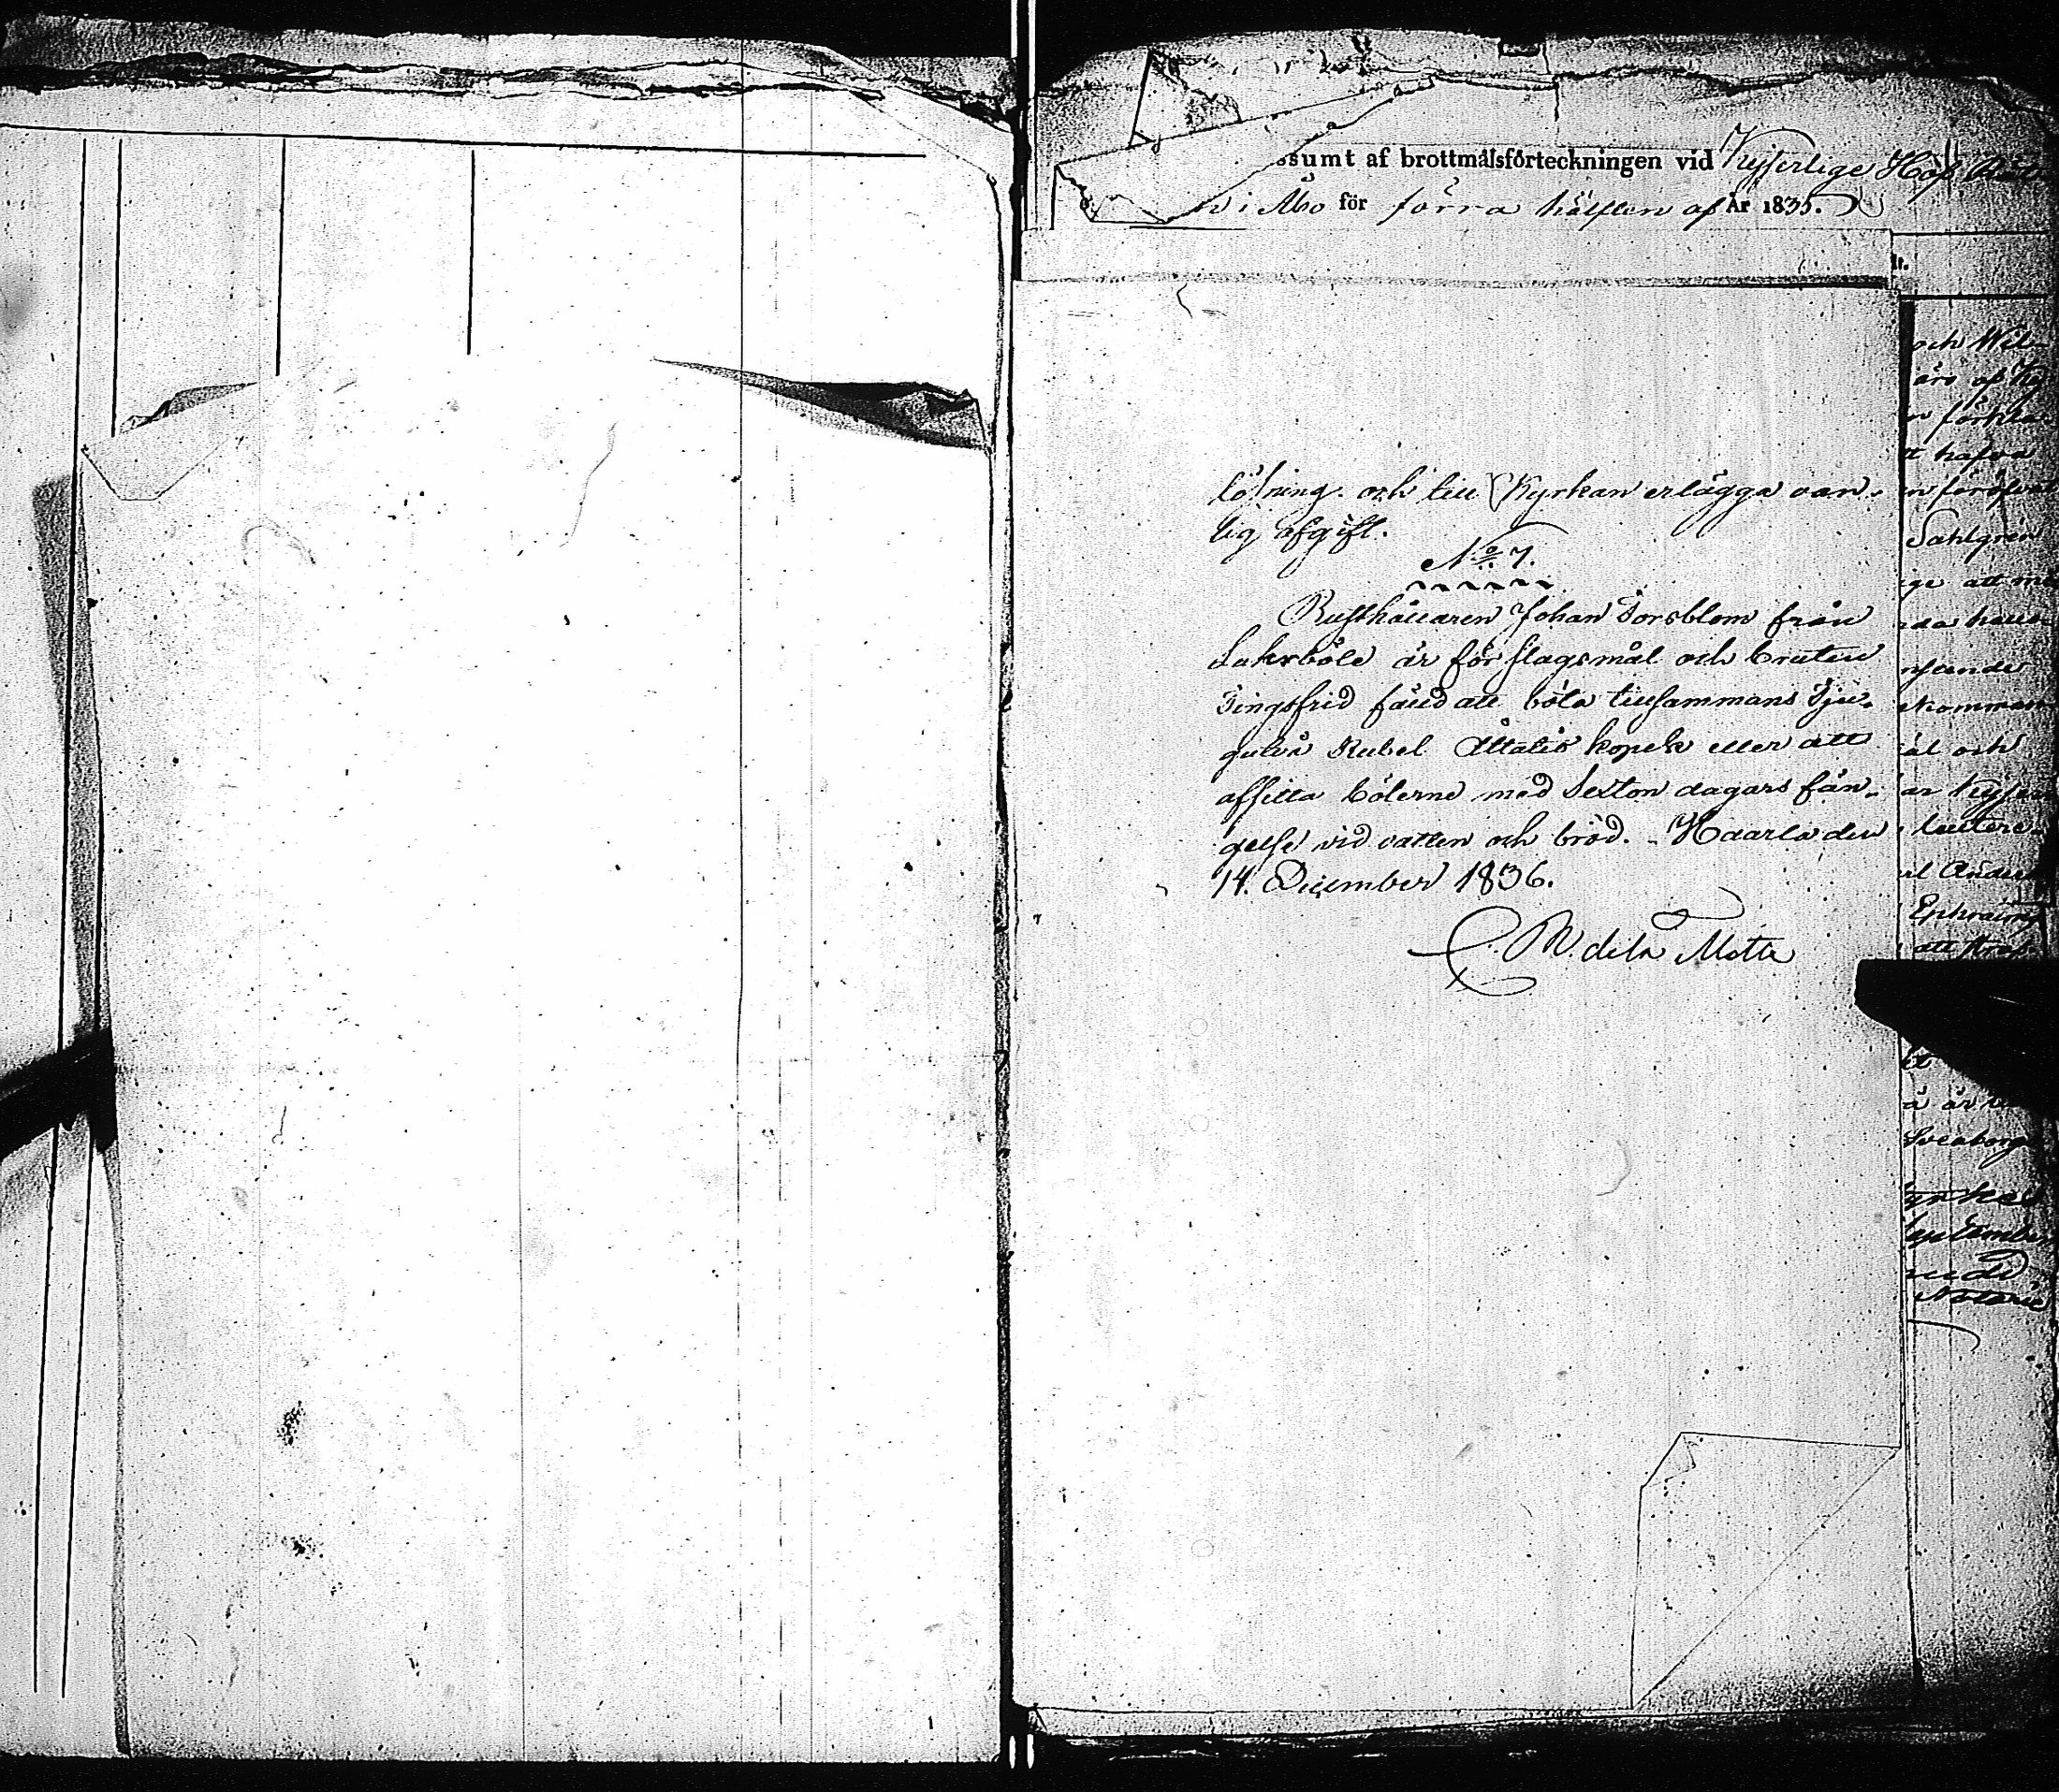 ssumt af brottmålsförteckningen vid Kejserlige Hof Rät
i Åbo för förra hälften af År 1835.
lösning. och till Kyrkan erlägga van-
lig afgift.
No 7.
Rusthållaren Johan Forsblom från
är för slagsmål och bruten
Tingsfrid fälld att böta tillsammans Tju-
gutvå Rubel Åttatio kopek eller att
afsitta böterne med Sexton dagars fän-
gelse vid vatten och bröd. - Haarla den
14. December 1836.
C. M. de la Motte
och Wil-
t hafva
Sahlgren
ge att me
ål och
ar Kejser
rl Anders
Ephraim
att
å är
Sveaborg
September
Notarie